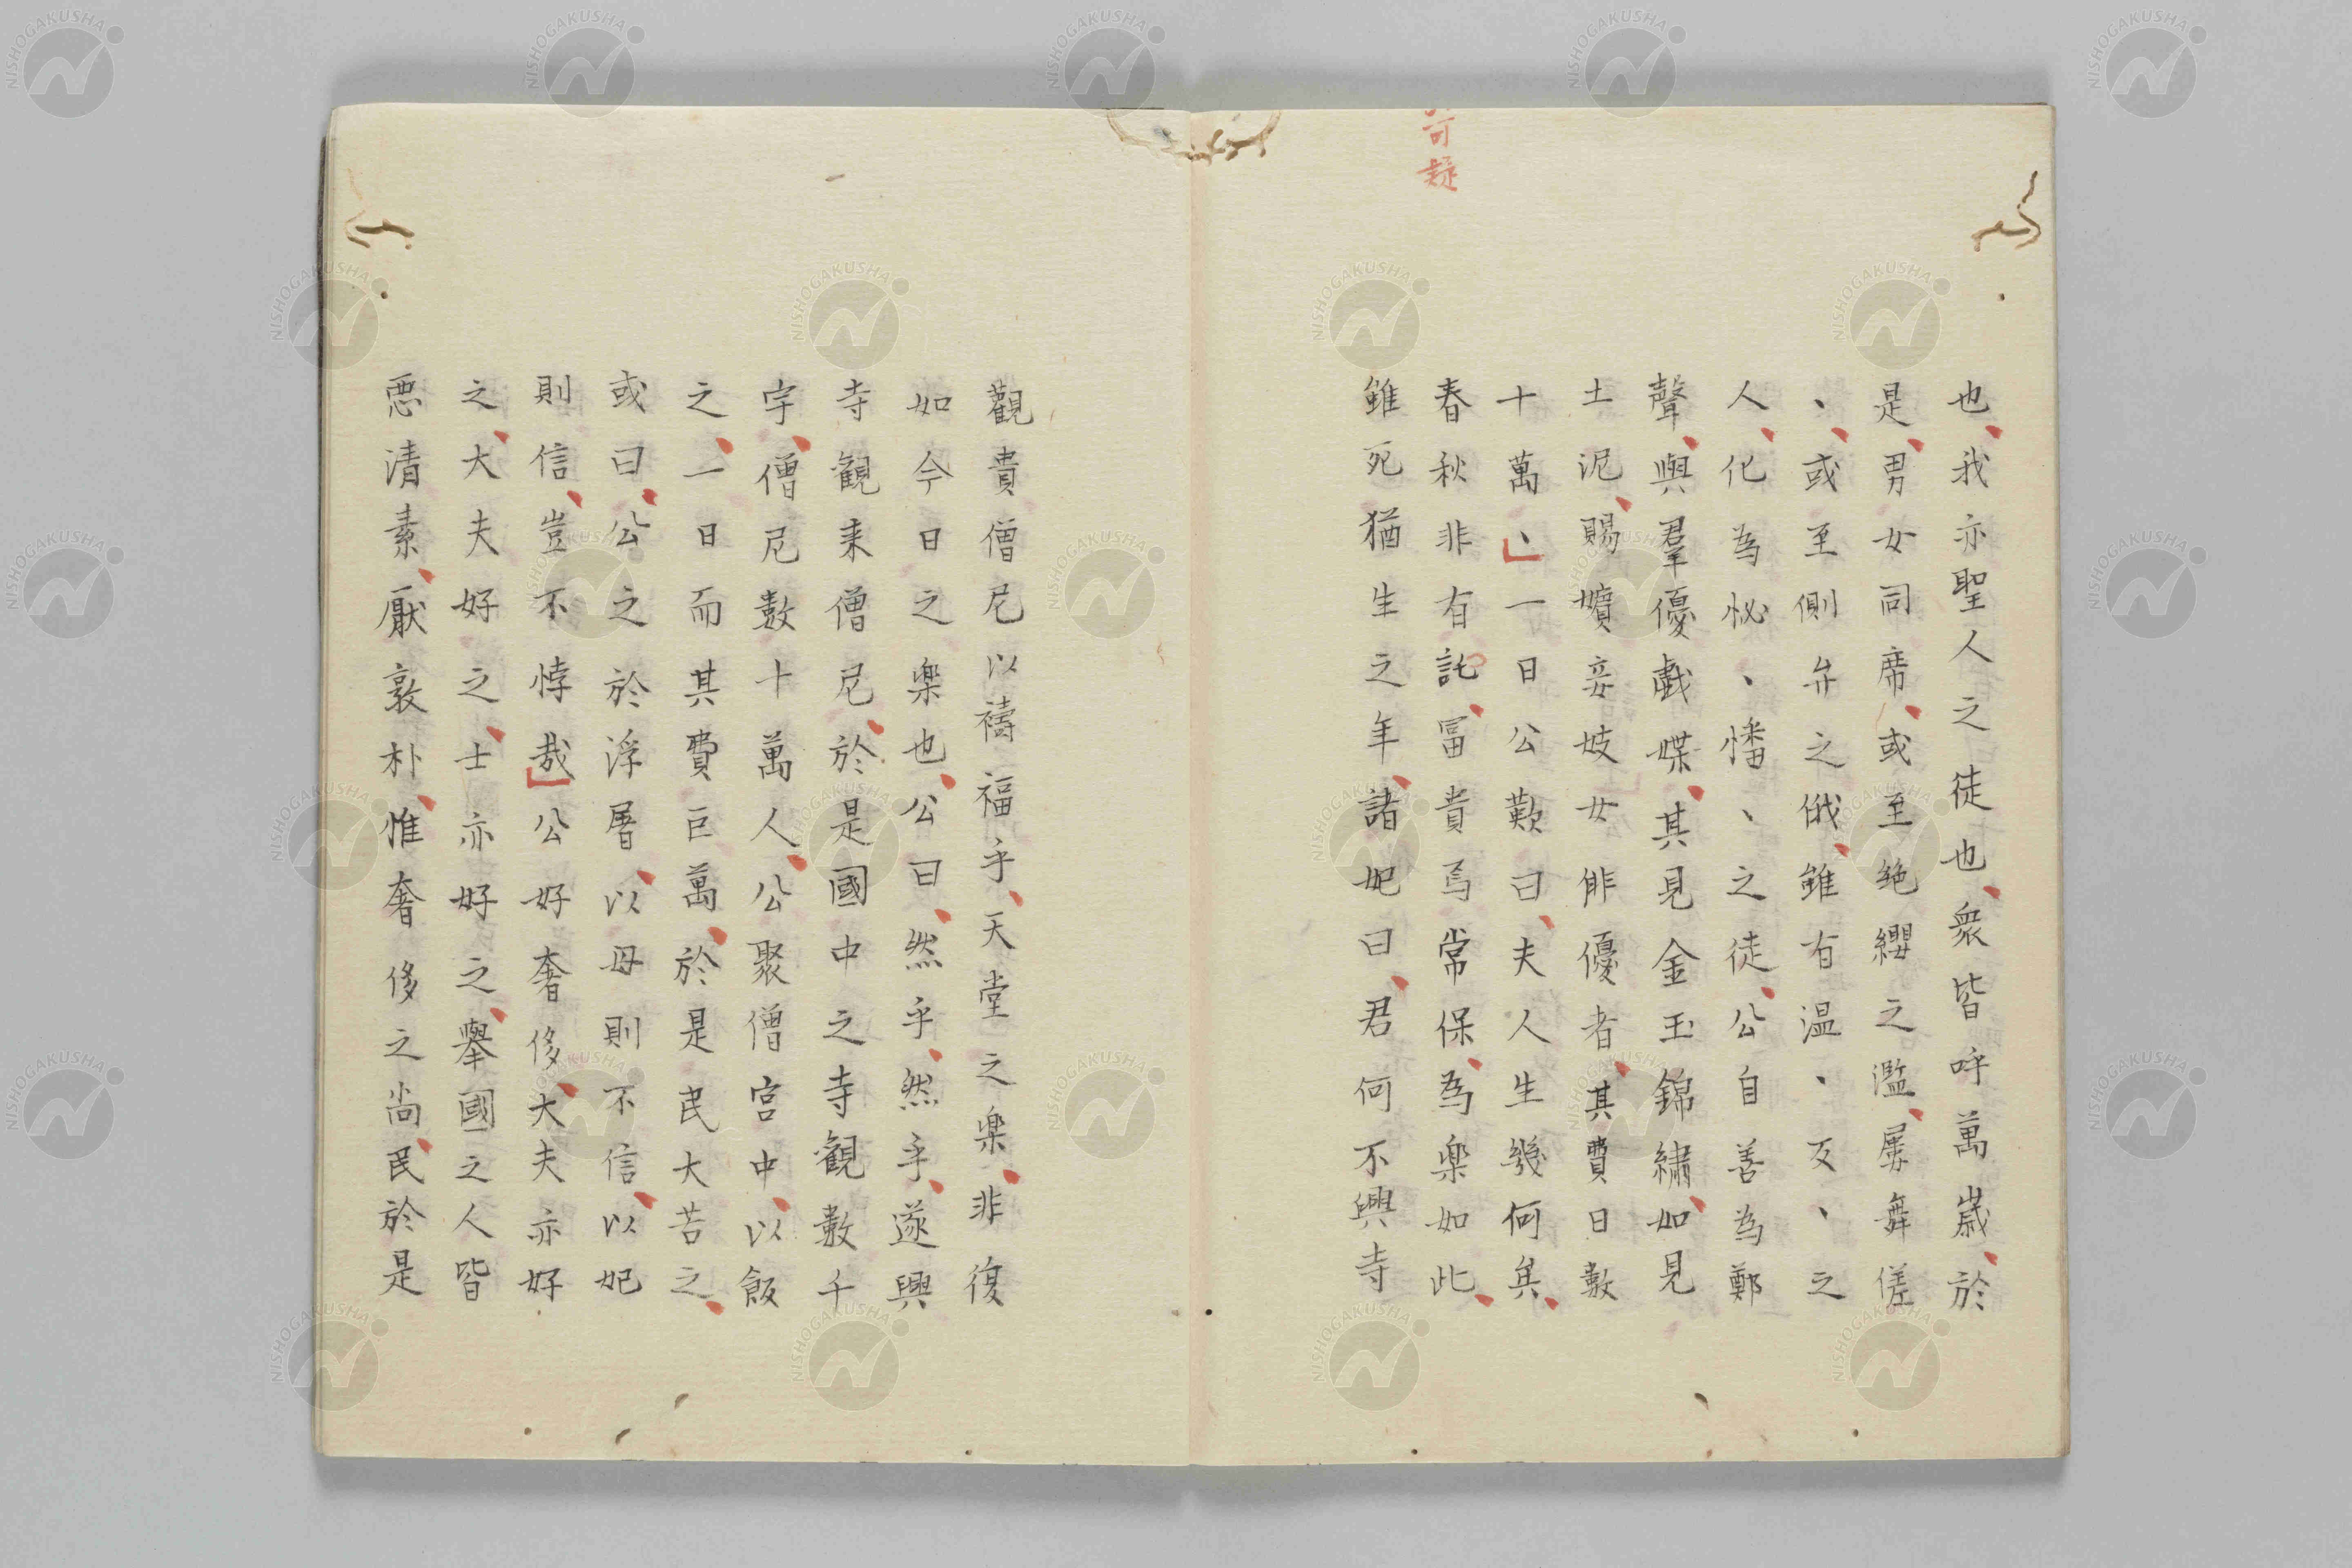 可疑
也、我亦聖人之徒也、衆皆呼萬嵗、於
是、男女同席、或至絶纓之濫、屢舞傞
丶、或至側弁之俄、雖有温丶反丶之
人、化為怭丶幡丶之徒、公自善為鄭
聲、與羣優戯媟、其見金玉錦繡、如見
土泥、賜嬪妾妓女俳優者、其費日數
十萬丶一日公歎曰、夫人生幾何矣、
春秋非有託、冨貴焉常保、為楽如此、
雖死猶生之年、諸妃曰、君何不興寺
觀貴僧尼以禱福乎、天堂之楽、非復
如今日之楽也、公曰、然乎、然乎、遂興
寺觀来僧尼、於是國中之寺觀數千
宇、僧尼數十萬人、公聚僧宮中、以飯
之、一日而其費巨萬、於是民大苦之、
或曰、公之於浮屠、以母則不信、以妃
則信、豈不悖哉公好奢侈、大夫亦好
之、大夫好之、士亦好之、舉國之人皆
悪清素、厭敦朴、惟奢侈之尚、民於是
NISHOGAKUSHA